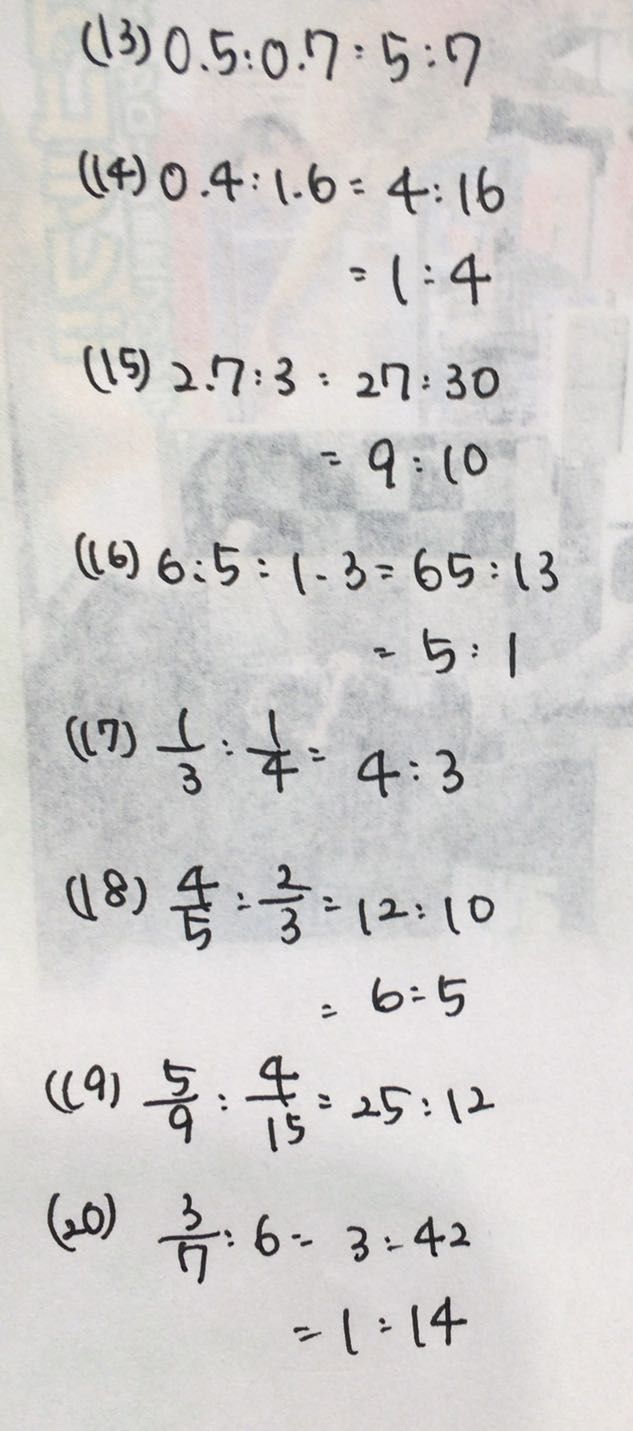 (13) 0.5:0.7=5:7
(14) 0.4:1.6=4:16
=1:4
(15) 2.7:3=27:30
=9:10
(16) 6:5:1.3=65:13
=5:1
(17) 1/3:1/4=4:3
(18) 4/5:2/3=12:10
=6:5
(19) 5/9:4/15=25:12
(20) 3/7:6=3:42
=1:14